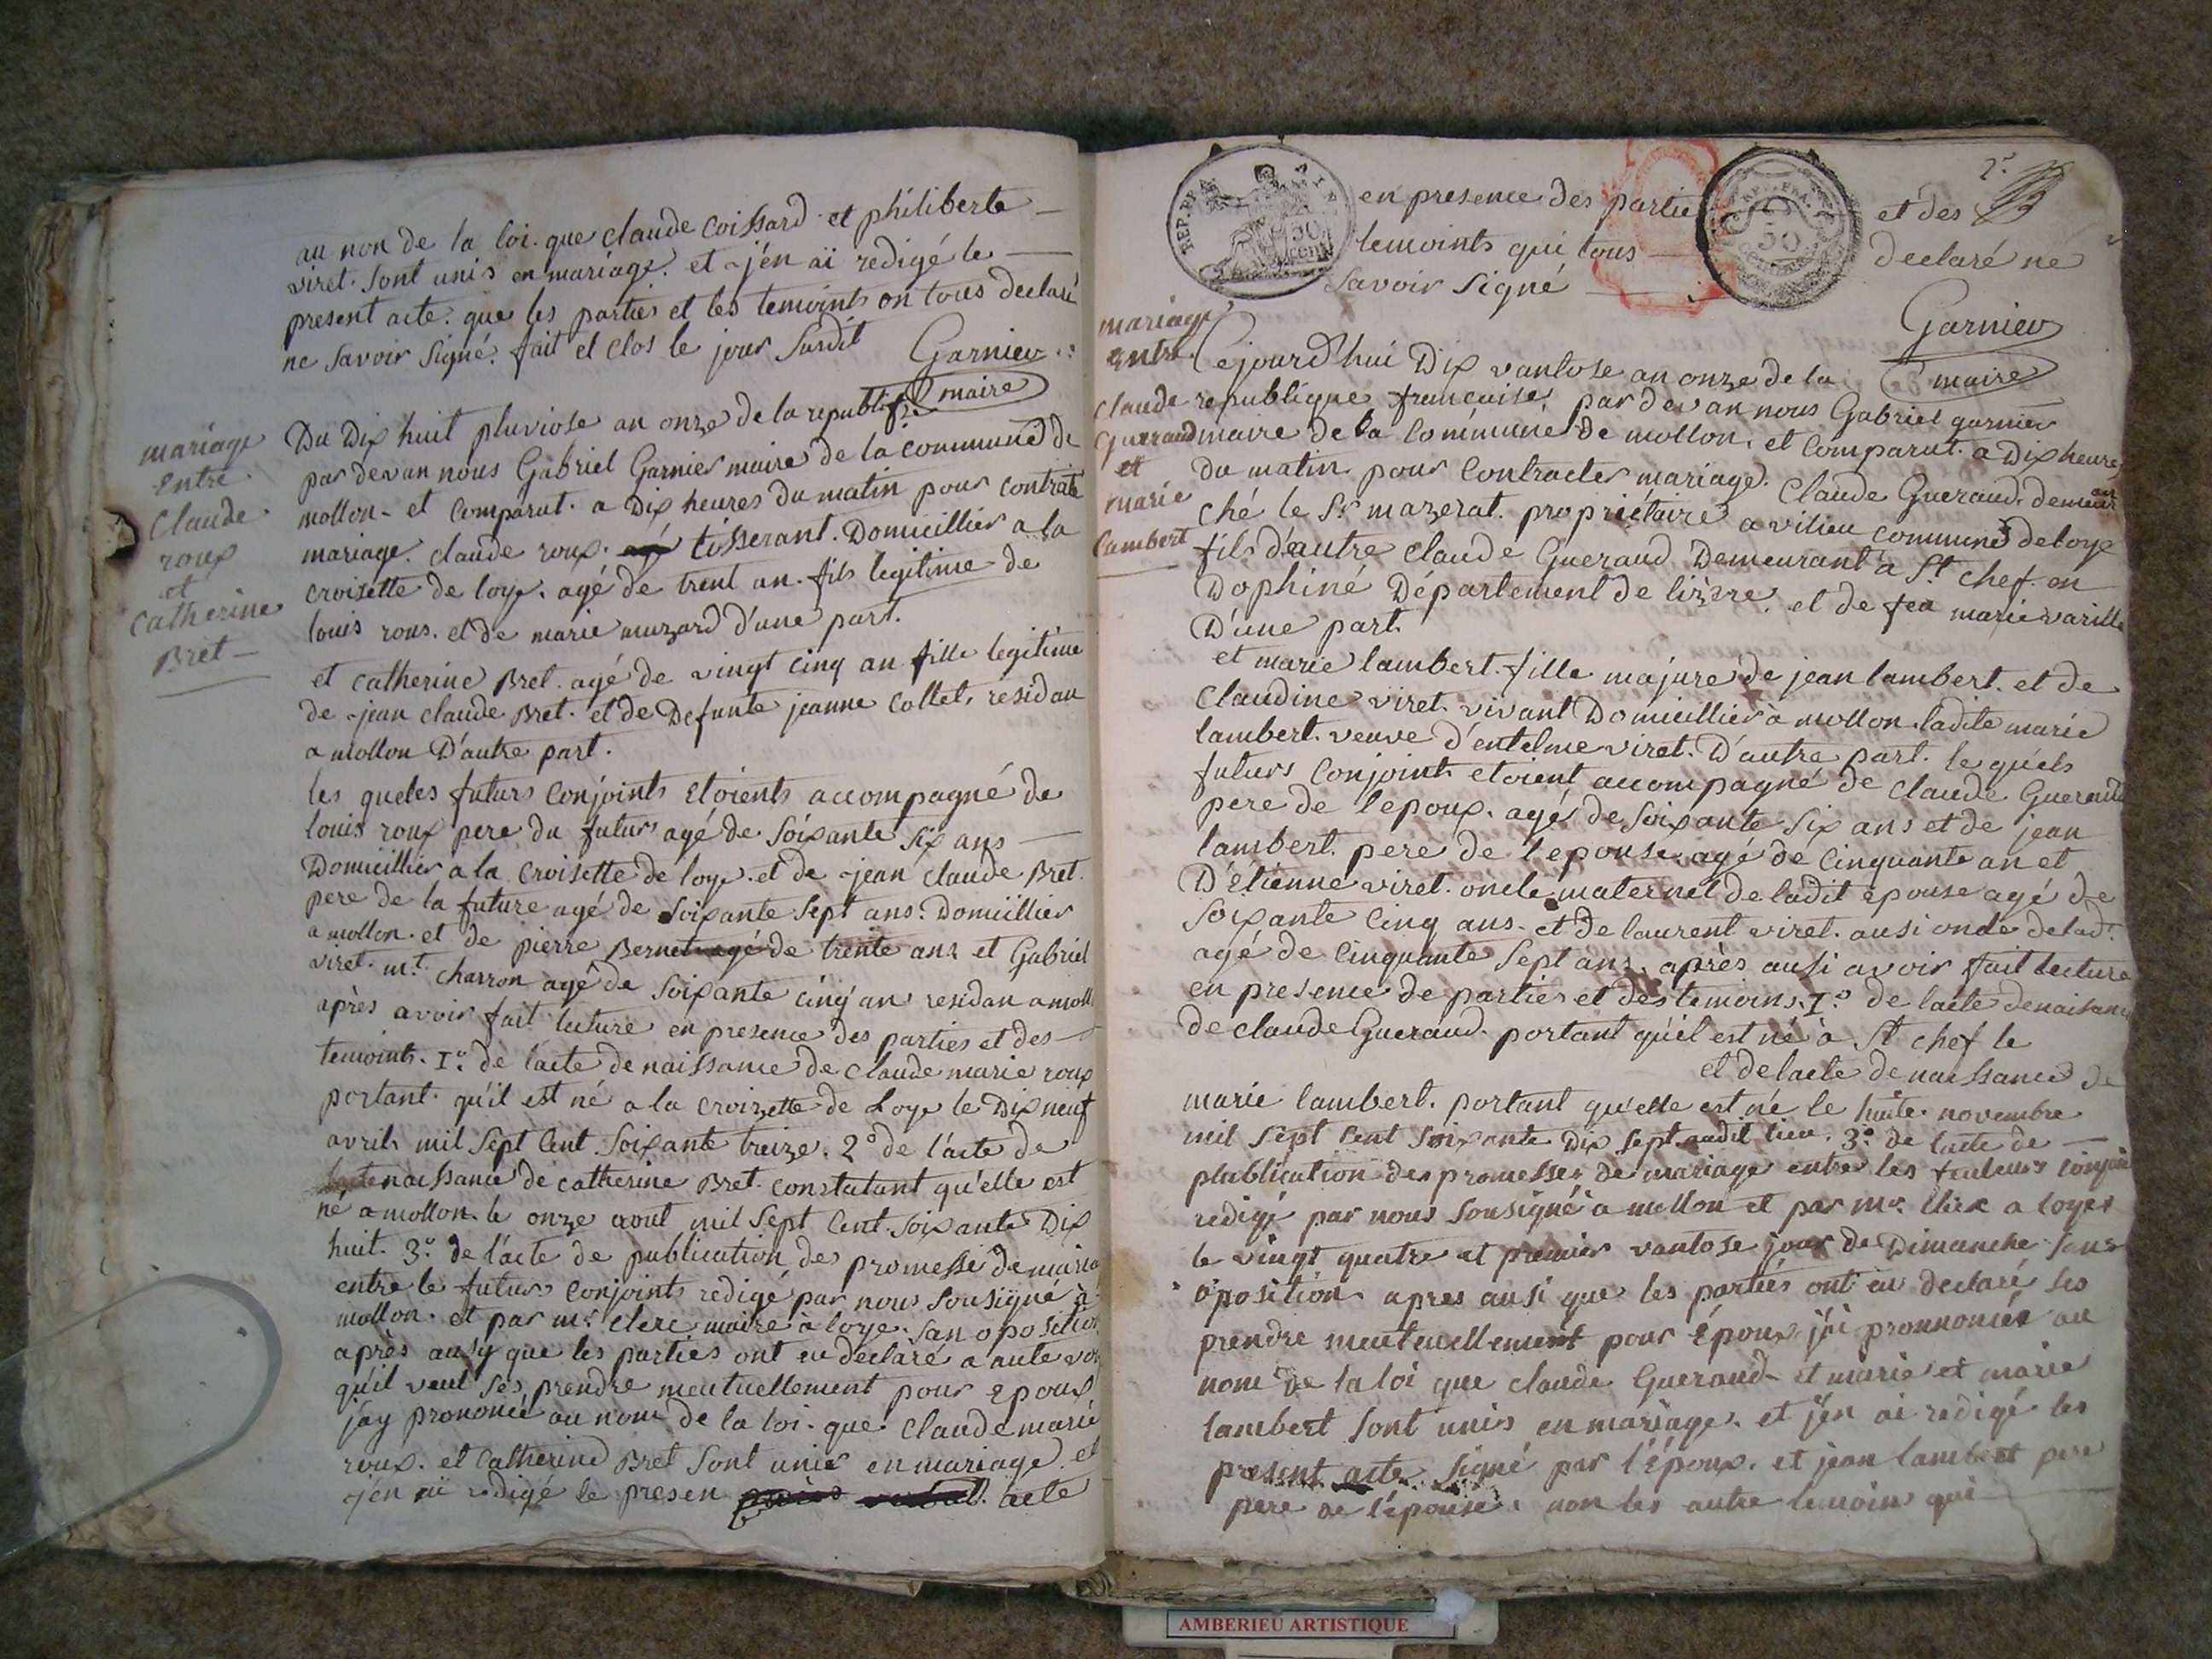 au non de la loi. que claude Coissard et philiberte
viret. Sont unis en mariage. et j'en aï redigé le
present acte. que les parties et les temoints on tous declaré
ne Savoir Signé. fait et clos le jour Susdit
Garnier
maire
mariage
Entre
Claude
roux
et
Catherine
Bret
Du Dix huit pluviose an onze de la republiq.
par devan nous Gabriel Garnier maire de la commune de
mollon - et Comparut. a Dix heures du matin pour contraté
mariage. claude roux. tisserant. Domicillier a la
croisette de loye. agé de trent an. fils legitime de
louis rous. et de marie muzard d'une part.
et catherine Bret. agé de vingt cinq an fille legitime
de jean claude Bret. et de Defunte jeanne Collet, residan
a mollon D'autre part.
les queles futurs Conjoints Etoients accompagné de
louis roux pere du futur agé de Soixante Six ans
Domicillier a la Croisette de loye. et de jean claude Bret.
pere de la future agé de Soixante Sept ans. Domicillier
a mollon. et de pierre Bernet agé de trente ans et Gabriel
viret. mt. charron agé de Soixante cinq an residan a moll
après avoir fait lecture en presence des parties et des
temoints. 1º de l'acte de naissance de Claude marie roux
portant. qu'il est né a la croizette de Loye le Dix neuf
avril mil Sept Cent Soixante treize. 2º de l'acte de
naissance de catherine Bret. constatant qu'elle est
né a mollon. le onze aout mil Sept Cent. Soixante Dix
huit. 3º de l'acte de publication des promesse de maria
entre le futurs Conjoints redigé par nous Sousigné à
mollon. et par mr. Clerc maire à loye. San oposition
après ausy que les parties ont eu declaré a aute voi
qu'il veul Ses prendre meutuellement pour Epoux
j'ay prononcé au nom de la loi. que Claude marie
roux. et Catherine Bret Sont unis en mariage. et
j'en aï redigé le presen acte
REP. FRA.
50
CENT.
REP. FRA.
50
2e
en presence des partie et des
temoints qui tous declaré ne
Savoir Signé
Garnier
maire
mariage
Entre
Claude
Gueraud
et
marie
Lambert
Cejourd'hui Dix vantose an onze de la
republique française par devan nous Gabriel garnier
maire de la Commune de mollon. et Comparut. a Dix heures
du matin pour Contracter mariage. Claude Gueraud. demeurant
ché le Sr. mazerat. propriétaire a vilieu commune de loye
fils d'autre Claude Gueraud Demeurant à St chef. en
Dophiné Département de lizere. et de feu marie varille
D'une part.
et marie lambert. fille majure de jean lambert. et de
Claudine viret. vivant Domicillier à mollon. ladite marie
lambert. veuve d'entelme viret. D'autre part. le quéls
futurs Conjoints etoient accompagné de Claude Gueraud
pere de l'epoux. agé de Soixante Six ans et de jean
lambert. pere de l'epouse agé de Cinquante an et
D'Etienne viret. oncle maternel de ladit epouse agé de
Soixante Cinq ans. et de laurent viret. ausi oncle de lad.
agé de Cinquante Sept ans. après ausi avoir fait lecture
en presence de parties et des temoins. 1º de l'acte de naisance
de claude Gueraud. portant qu'il est né à St chef le
et de l'acte de naissance de
marie lambert. portant qu'elle est né le huite. novembre
mil Sept Cent Soixante Dix Sept audit lieu. 3º de l'acte de
plublication des promesses de mariage entre les feuteurs conjoin
redigé par nous Sousigné a mollon et par mr. Clerc a loyes
le vingt quatre et premier vantose jour de Dimanche Sans
oposition. apres ausi que les parties ont eu declaré Ses
prendre meutuellement pour Époux j'ai pronnoncéz au
nom de la loi que claude Gueraud et marie et marie
lambert Sont unis en mariage. et j'en ai redigé les
present acte Signé par l'Époux. et jean lambert pere
pere de l'épouse. non les autre temoins qui
AMBERIEU ARTISTIQUE